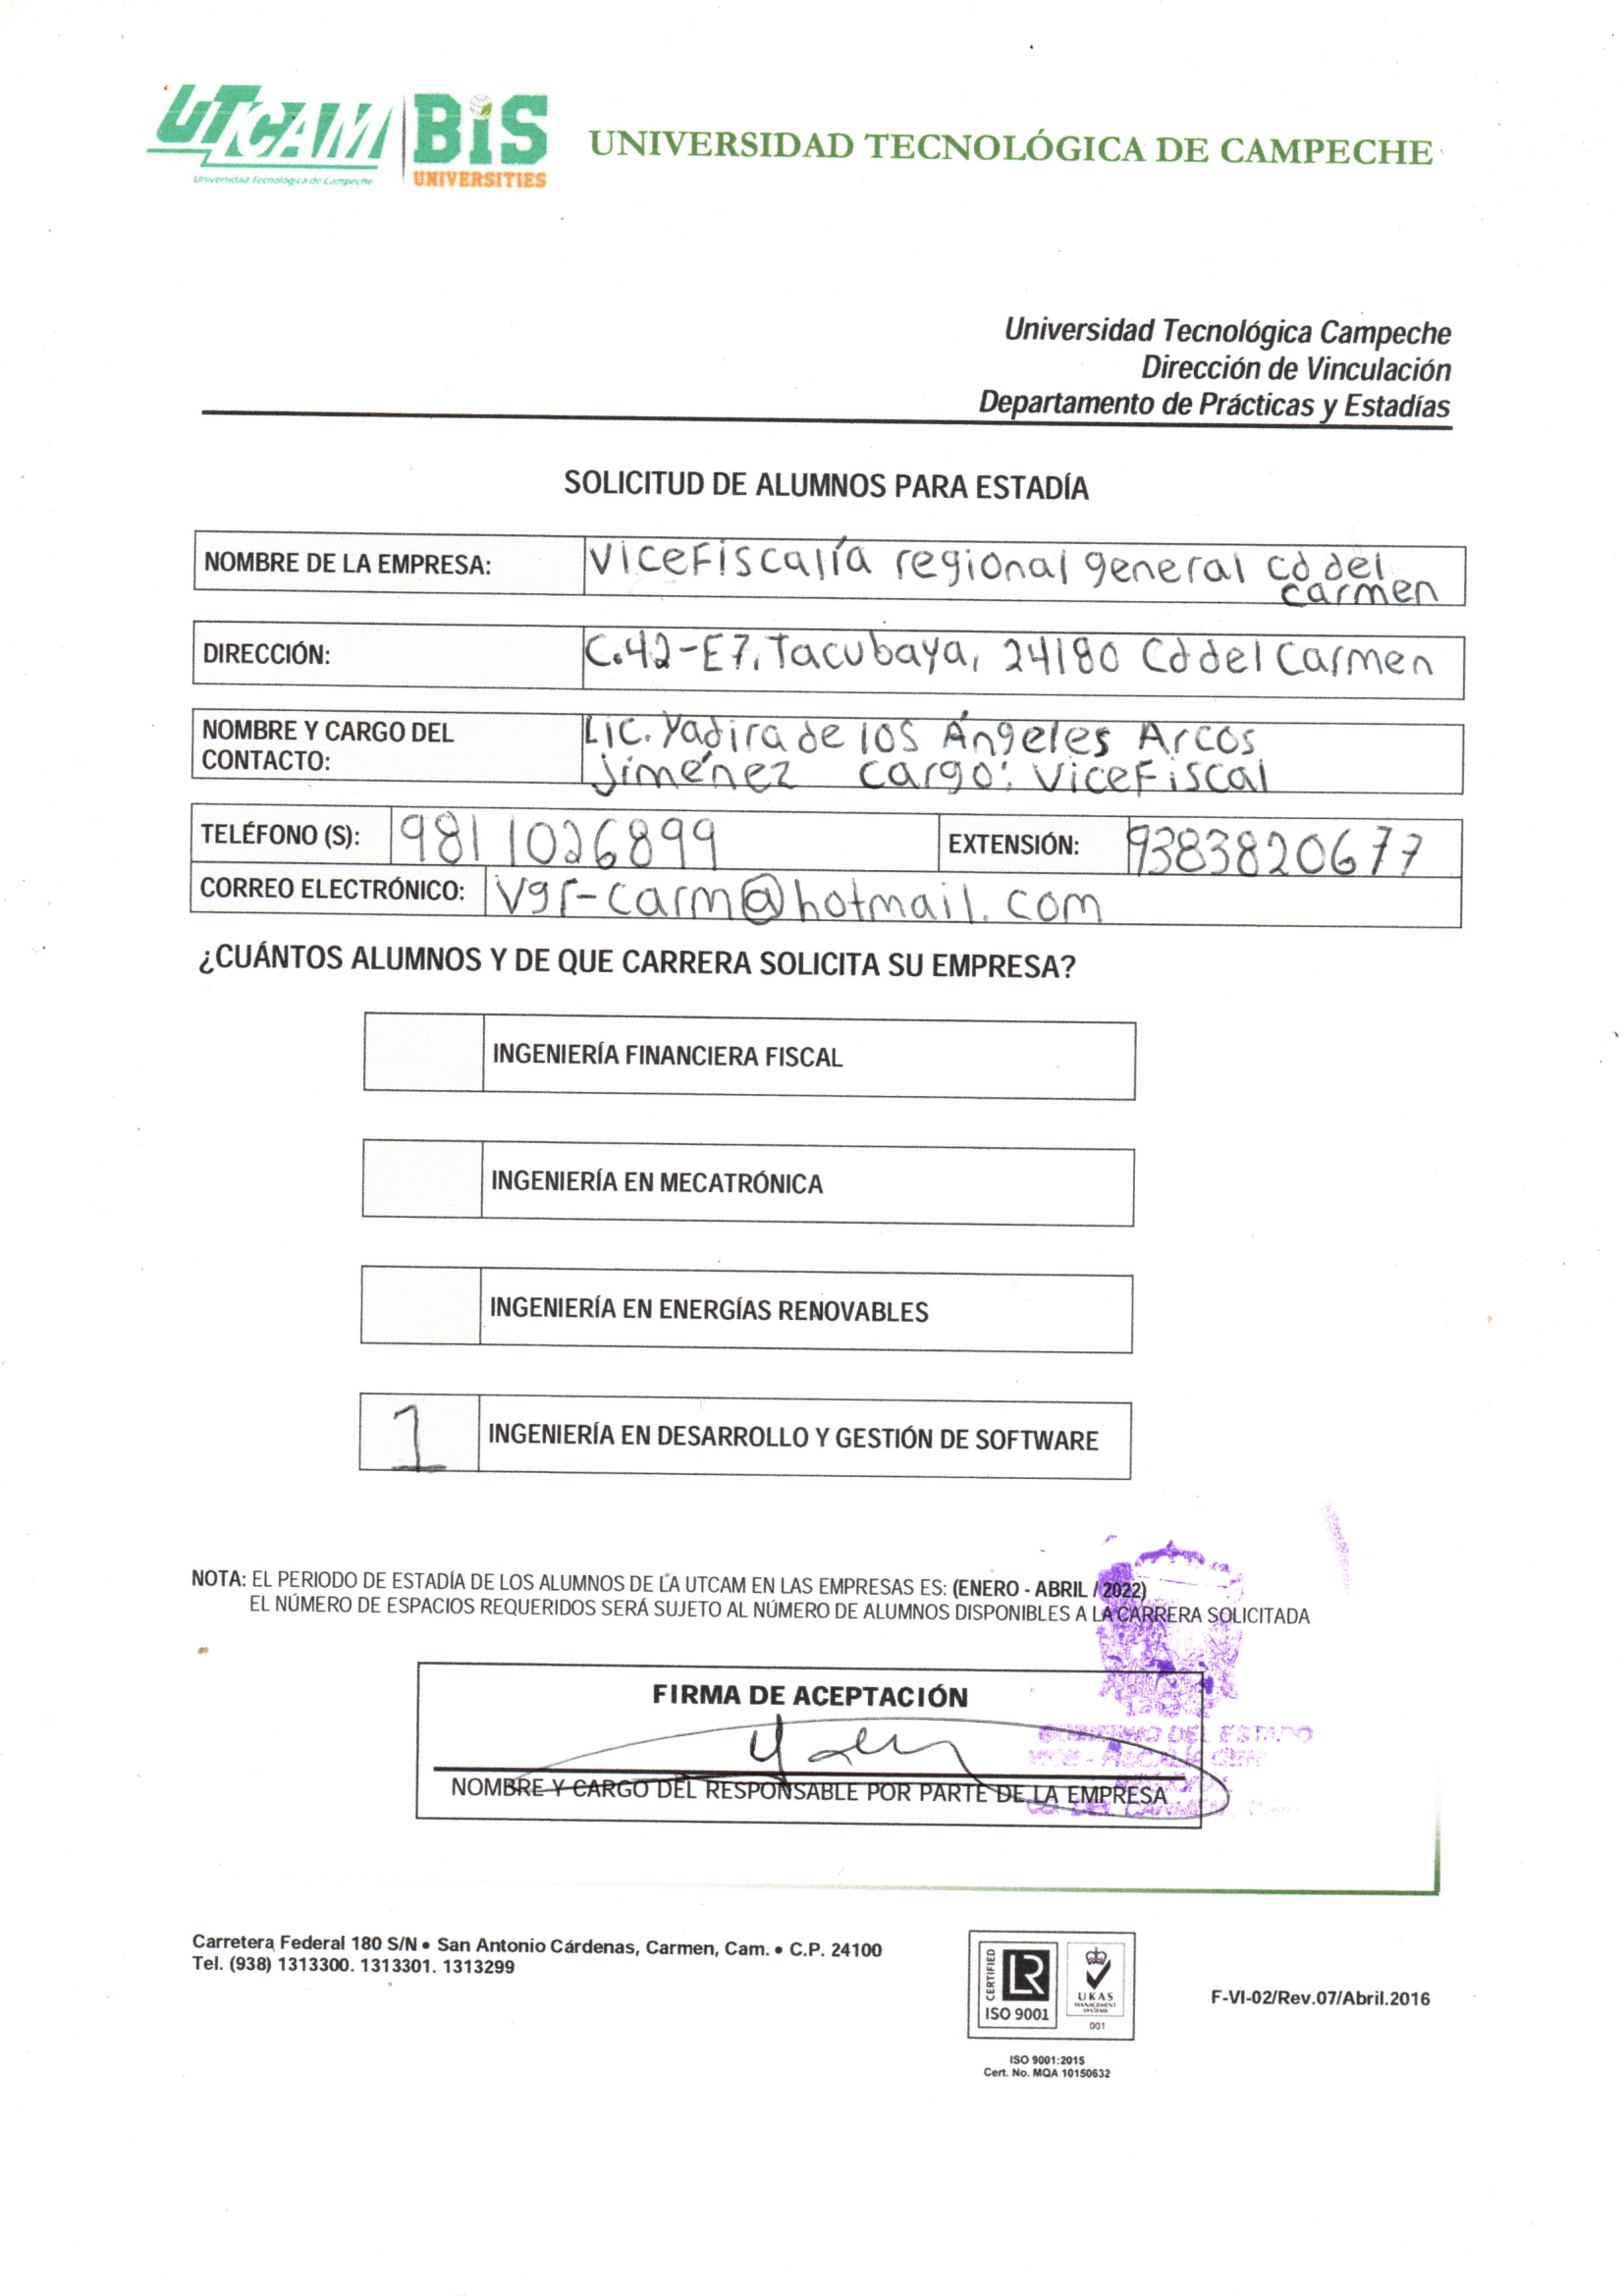 UTCAM BiS UNIVERSIDAD TECNOLÓGICA DE CAMPECHE
Universidad Tecnológica de Campeche UNIVERSITIES
Universidad Tecnológica Campeche
Dirección de Vinculación
Departamento de Prácticas y Estadías
SOLICITUD DE ALUMNOS PARA ESTADÍA
NOMBRE DE LA EMPRESA: ViceFiscalía regional general cd del
carmen
DIRECCIÓN: C.42-E7, Tacubaya, 24180 Cd del Carmen
NOMBRE Y CARGO DEL Lic. Yadira de los Ángeles Arcos
CONTACTO: Jiménez cargo: ViceFiscal
TELÉFONO (S): 9811026899 EXTENSIÓN: 9383820677
CORREO ELECTRÓNICO: Vgr-carm@hotmail.com
¿CUÁNTOS ALUMNOS Y DE QUE CARRERA SOLICITA SU EMPRESA?
INGENIERÍA FINANCIERA FISCAL
INGENIERÍA EN MECATRÓNICA
INGENIERÍA EN ENERGÍAS RENOVABLES
1 INGENIERÍA EN DESARROLLO Y GESTIÓN DE SOFTWARE
NOTA: EL PERIODO DE ESTADÍA DE LOS ALUMNOS DE LA UTCAM EN LAS EMPRESAS ES: (ENERO - ABRIL / 2022)
EL NÚMERO DE ESPACIOS REQUERIDOS SERÁ SUJETO AL NÚMERO DE ALUMNOS DISPONIBLES A LA CARRERA SOLICITADA
FIRMA DE ACEPTACIÓN
DEL ESTADO
NOMBRE Y CARGO DEL RESPONSABLE POR PARTE DE LA EMPRESA
Carretera Federal 180 S/N • San Antonio Cárdenas, Carmen, Cam. • C.P. 24100
Tel. (938) 1313300. 1313301. 1313299
CERTIFIED LR
ISO 9001
UKAS
MANAGEMENT
SYSTEMS
001
F-VI-02/Rev.07/Abril.2016
ISO 9001:2015
Cert. No. MQA 10150632